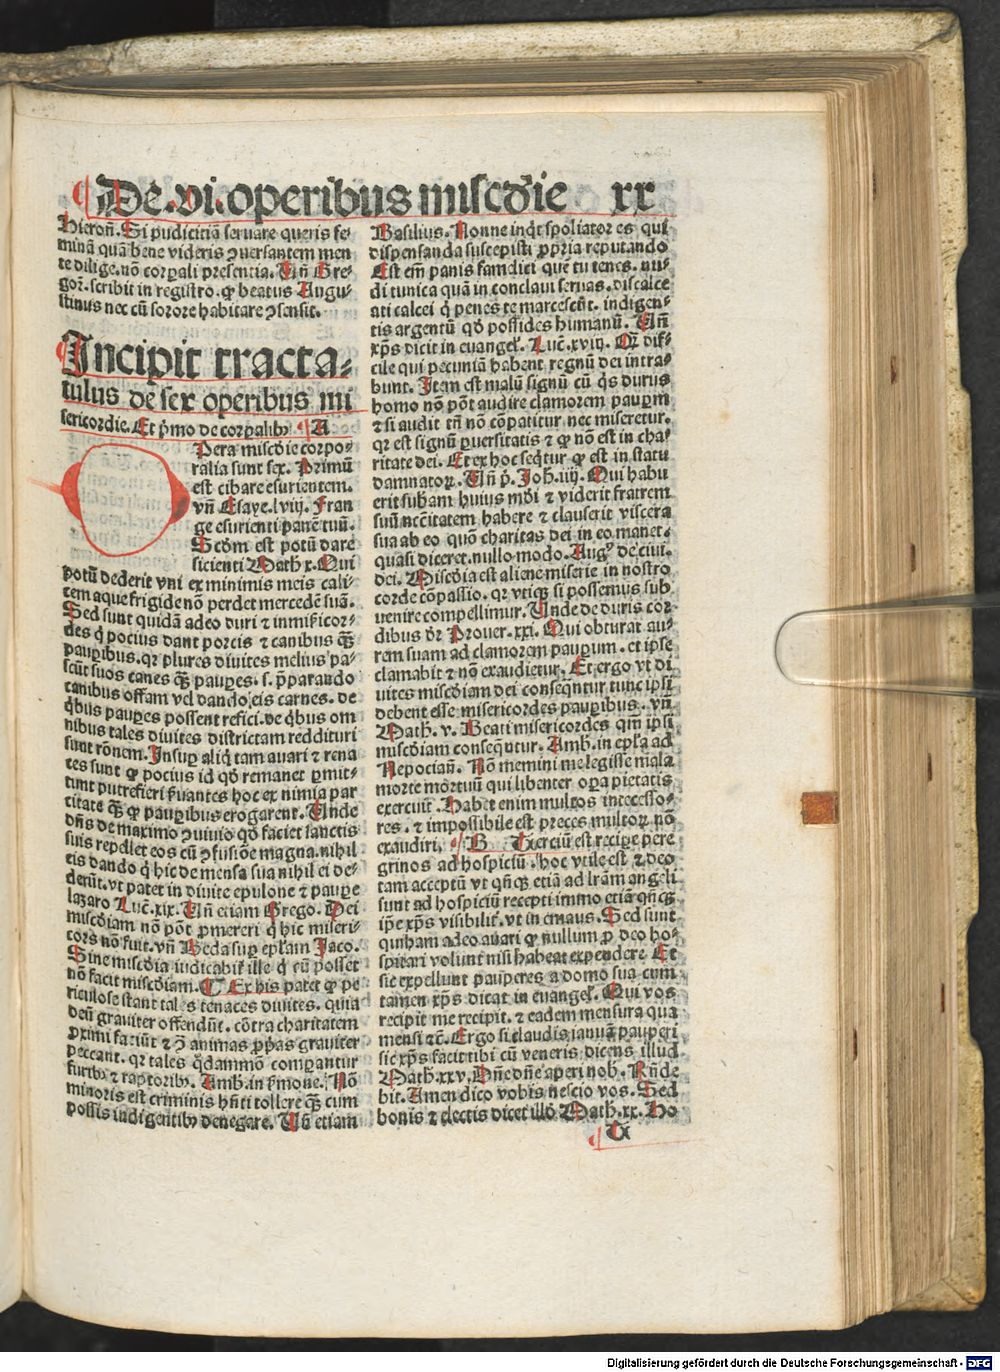 De.vi.operibus miſcd̄ie xx
Hieron̄. Si pudicitiā ſeruare queris fe
minā quā bene videris ꝯuerſantem men
te dilige.nō corꝑali preſentia. Vn̄ Gre-
gor̄. ſcribit in regiſtro. ꝙ beatus Augu-
ſtinus nec cū ſorore habitare ꝯſenſit.
Incipit tracta-
tulus de ſex operibus mi
ſericordie. Et p̄mo de corꝑalibꝰ A
Opera miſcd̄ie corpo-
ralia ſunt ſex. Primū
eſt cibare eſurientem.
vn̄ Eſaye.lviij. Fran
ge eſurienti panē tuū.
Scd̄m eſt potū dare
ſicienti Math̄ x. Qui
potū dederit vni ex minimis meis cali-
cem aque frigide nō perdet mercedē ſuā.
Sed ſunt quidā adeo duri ⁊ inmiſicor-
des q̇ pocius dant porcis ⁊ canibus qȝ̄
pauꝑibus. qꝛ plures diuites melius pa-
ſcūt ſuos canes qȝ̄ pauꝑes. ſ. p̄parando
canibus offam vel dando eis carnes. de
q̇bus pauꝑes poſſent refici. de q̇bus om
nibus tales diuites diſtrictam reddituri
ſunt rōnem. Inſuꝑ aliq̇ tam auari ⁊ tena
tes ſunt ꝙ pocius id qd̄ remanet ꝑmit-
tunt putrefieri ſ̄uantes hoc ex nimia par
citate qȝ̄ ꝙ pauꝑibus erogarent. Vnde
dn̄s de maximo ꝯuiuio qd̄ faciet ſanctis
ſuis repellet eos cū ꝯfuſiōe magna. nihil
eis dando q̇ hic de menſa ſua nihil ei de-
derūt. vt patet in diuite epulone ⁊ pauꝑe
lazaro Luc̄.xix. Vn̄ etiam Grego. Dei
miſcd̄iam nō pōt ꝓmereri q̇ hic miſeri-
cors nō fuit. vn̄ Beda ſuꝑ epl̄am Jaco.
Sine miſcd̄ia iudicabiť ille q̇ cū poſſet
nō facit miſcd̄iam. ¶ Ex his patet ꝙ pe
riculoſe ſtant tales tenaces diuites. quia
deū grauiter offendūt. cōtra charitatem
ꝓximi faciūt ⁊ ꝯ̄ animas ꝓp̄as grauiter
peccant. qꝛ tales q̇dammō comparantur
furibꝰ ⁊ raptoribꝰ. Amb̄. in ſ̄mone. Nō
minoris eſt criminis hn̄ti tollere qȝ̄ cum
poſſis indigentibꝰ denegare. Vn̄ etiam
Baſilius. Nonne inq̇t ſpoliator es qui
diſpenſanda ſuſcepiſti ꝓpria reputando
Eſt em̄ panis famelici que tu tenes. nu-
di tunica quā in conclaui ſeruas. diſcalce
ati calcei q̇ penes te marceſcūt. indigen-
tis argentū qd̄ poſſides humanū. Vn̄
xp̄s dicit in euangel̄. Luc̄.xviij. Qꝛ diffi-
cile qui pecuniā habent regnū dei intra-
bunt. Item eſt malū ſignū cū q̇s durus
homo nō pōt audire clamorem pauꝑum
⁊ ſi audit tn̄ nō cōpatitur nec miſeretur.
qꝛ eſt ſignū ꝑuerſitatis ⁊ ꝙ nō eſt in cha-
ritate dei. Et ex hoc ſeq̇tur ꝙ eſt in ſtatu
damnatoꝝ. Vn̄ p̄. Joh̄.iiij. Qui habu
erit ſubam huius mūdi ⁊ viderit fratrem
ſuū nec̄itatem habere ⁊ clauſerit viſcera
ſua ab eo quō charitas dei in eo manet.
quaſi diceret.nullo modo. Augꝰ de ciui.
dei. Miſcd̄ia eſt aliene miſerie in noſtro
corde cōpaſſio. qꝛ vtiqȝ ſi poſſemus ſub
uenire compellimur. Vnde de duris cor-
dibus dr̄ Prouer.xxi. Qui obturat au-
rem ſuam ad clamorem pauꝑum. et ipſe
clamabit ⁊ nō exaudietur. Et ergo vt di
uites miſcd̄iam dei conſeq̄ntur tunc ipſi
debent eſſe miſericordes pauꝑibus. vn̄
Math̄. v. Beati miſericordes qm̄ ipſi
miſcd̄iam conſeq̄utur. Amb̄. in epl̄a ad
Nepocian̄. Nō memini me legiſſe mala
morte mortuū qui libenter oꝑa pietatis
exercuit. Habet enim multos interceſſo-
res. ⁊ impoſſibile eſt preces multoꝝ nō
exaudiri. B Terciū eſt reciꝑe pere
grinos ad hoſpiciū. hoc vtile eſt ⁊ deo
tam acceptū vt qn̄qȝ etiā ad lr̄am angeli
ſunt ad hoſpiciū recepti immo etiā qn̄qȝ
ip̄e xp̄s viſibiliť. vt in emaus. Sed ſunt
quidam adeo auari ꝙ nullum ꝓ deo ho-
ſpitari volunt niſi habeat expendere. Et
ſic expellunt pauperes a domo ſua cum
tamen xp̄s dicat in euangel̄. Qui vos
recipit me recipit. ⁊ eadem menſura qua
menſi ⁊c̄. Ergo ſi claudis ianuā pauperi
ſic xp̄s facit tibi cū veneris dicens illud
Math̄.xxv. Dn̄e dn̄e aperi nob̄. Rn̄de
bit. Amen dico vobis neſcio vos. Sed
bonis ⁊ electis dicet illd̄ Math̄.xx. Ho
C
Digitalisierung gefördert durch die Deutsche Forschungsgemeinschaft - DFG